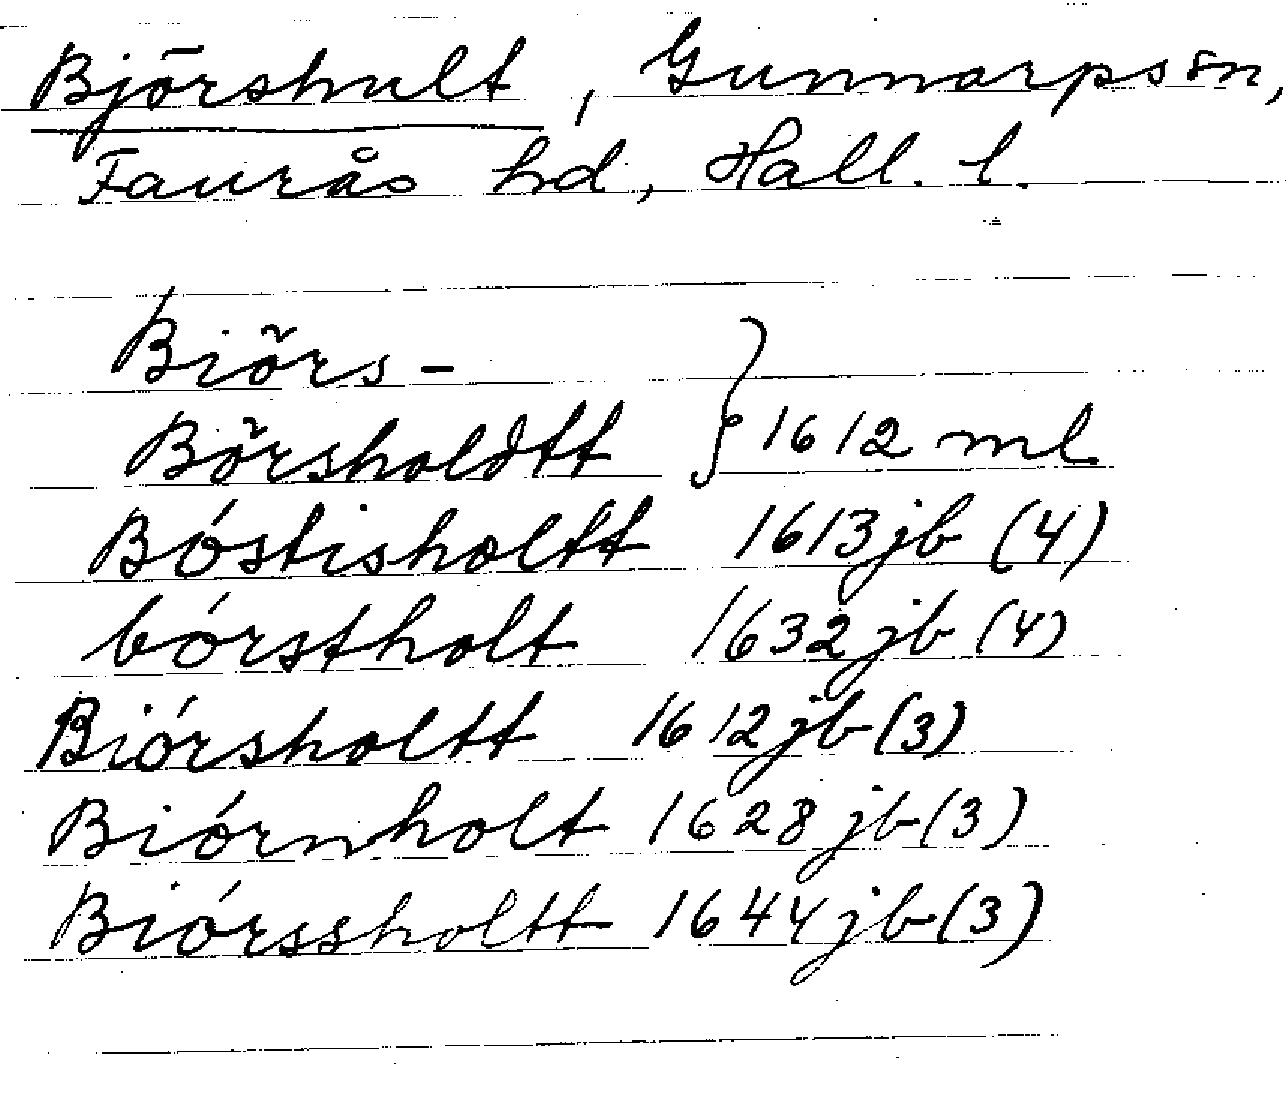 Bjórshult, Gunnarps sn,
Faurås hd, Hall. l.
Biŏrs -
Bŏrsholdtt } 1612 ml
Bóstisholtt 1613 jb (4)
bórstholt 1632 jb (4)
Biórsholtt 1612 jb (3)
Biórnholt 1628 jb (3)
Biórssholtt 1644 jb (3)